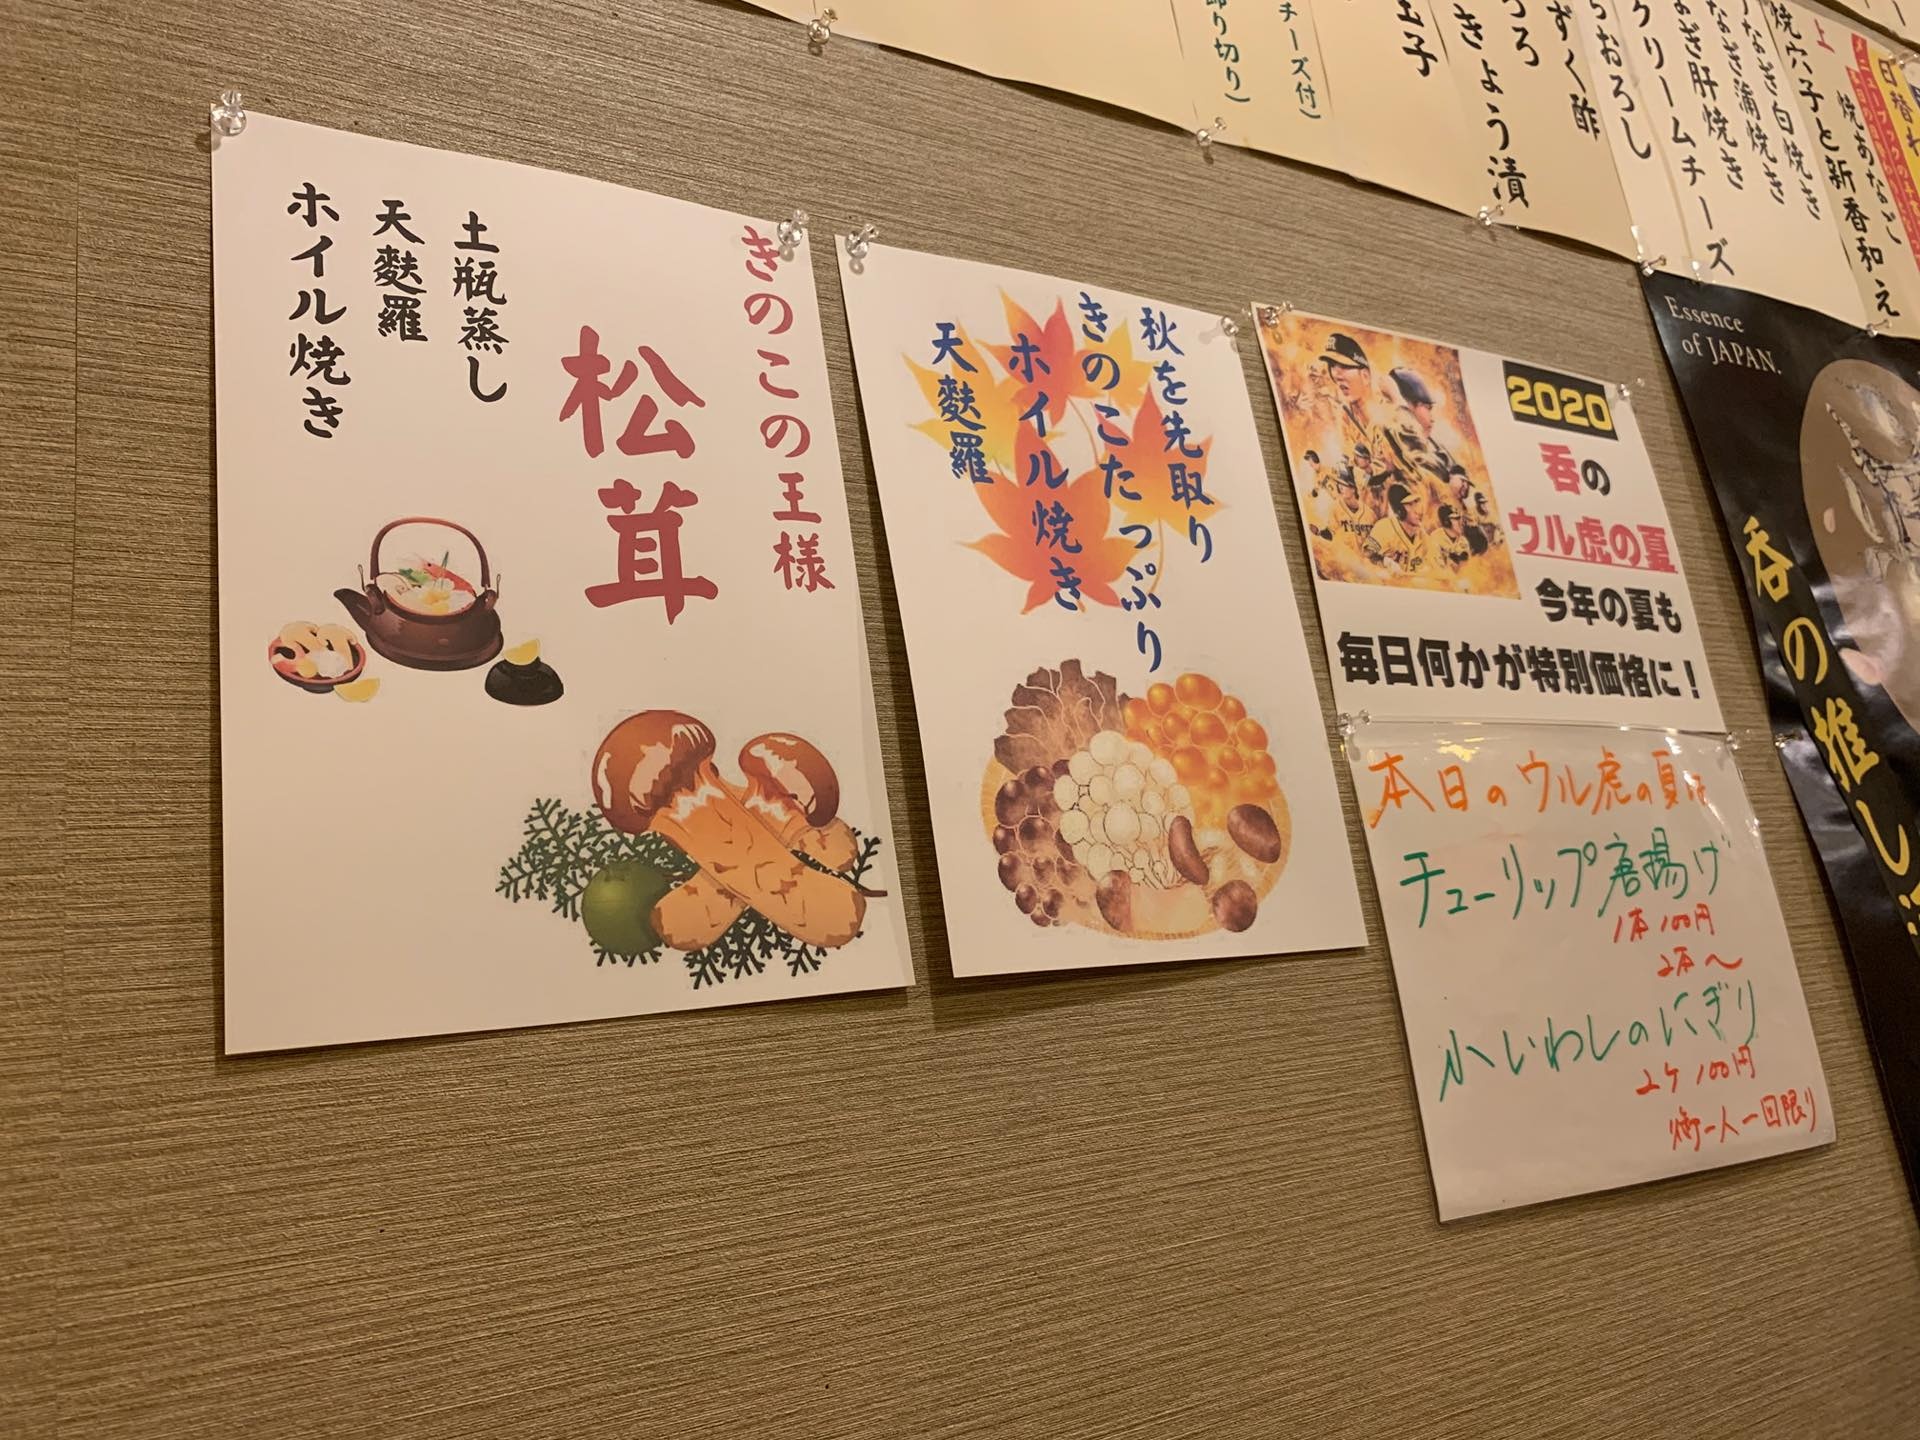 きのこの王様
松茸
土瓶蒸し
天麩羅
ホイル焼き
秋を先取り
きのこたっぷり
ホイル焼き
天麩羅
2020
呑の
ウル虎の夏
今年の夏も
毎日何かが特別価格に!
Tigers
本日のウル虎の夏は
チューリップ唐揚げ
1本100円
2本〜
小いわしのにぎり
2ケ100円
御一人一回限り
Essence
of JAPAN.
呑の推し
日替わ
上
焼あなご
焼穴子と新香和え
なぎ白焼き
なぎ蒲焼き
なぎ肝焼き
クリームチーズ
らおろし
ずく酢
つろ
きょう漬
玉子
チーズ付)
切り)